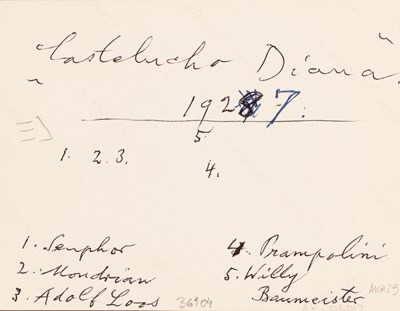 „Castelucho Diana“.
1928 7.
5.
1. 2. 3.
4.
1. Senphor
2. Mondrian
3. Adolf Loos
4. Prampolini
5. Willy
Baumeister
36904